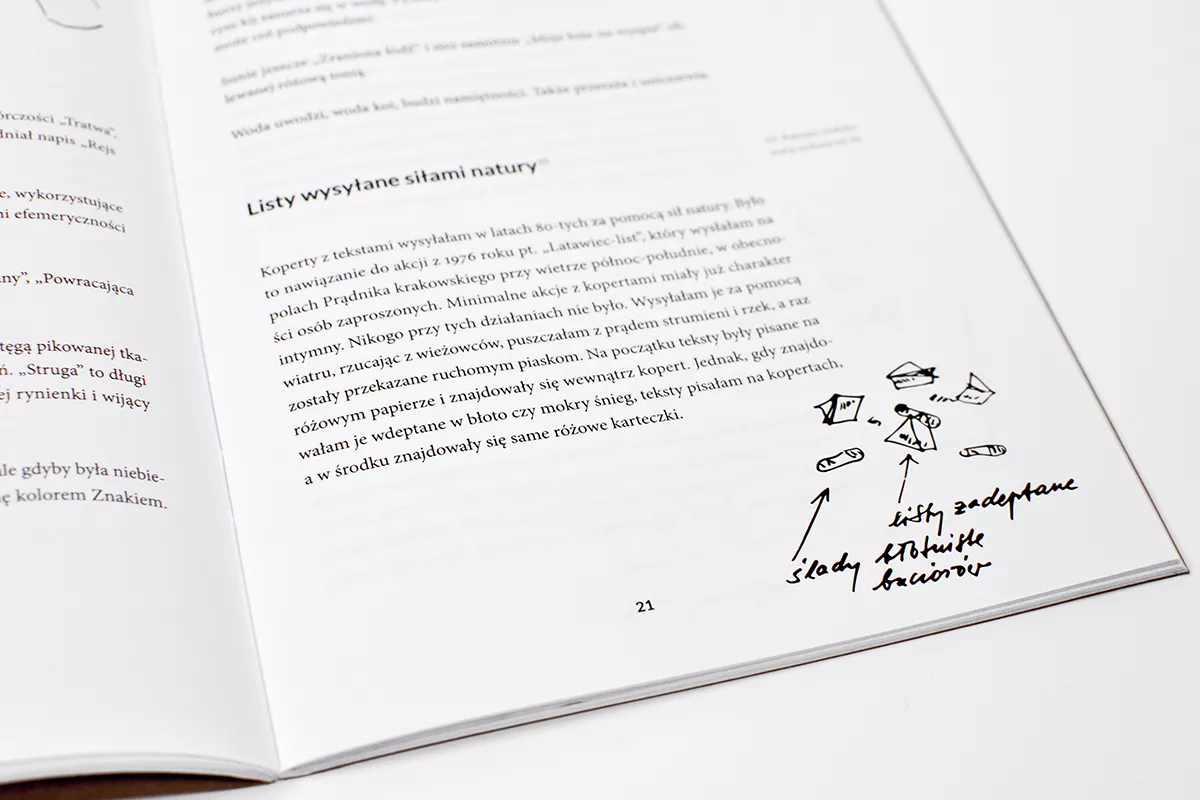 órczości „Tratwa”.
dniał napis „Rejs
e, wykorzystujące
ni efemeryczności
ny”, „Powracająca
tęgą pikowanej tka-
ń. „Struga” to długi
ej rynienki i wijący
ale gdyby była niebie-
ę kolorem Znakiem.
może coś podpowiedzieć.
Sunie jeszcze „Zraniona łódź” i stoi samotnie
lewanej różową
Woda uwodzi, woda koi, budzi namiętności. Także przeraża i unicestwia.
Listy wysyłane siłami natury
Koperty z tekstami wysyłałam w latach 80-tych za pomocą sił natury. Było
to nawiązanie do akcji z 1976 roku pt. „Latawiec-list”, który wysłałam na
polach Prądnika krakowskiego przy wietrze północ-południe, w obecno-
ści osób zaproszonych. Minimalne akcje z kopertami miały już charakter
intymny. Nikogo przy tych działaniach nie było. Wysyłałam je za pomocą
wiatru, rzucając z wieżowców, puszczałam z prądem strumieni i rzek, a raz
zostały przekazane ruchomym piaskom. Na początku teksty były pisane na
różowym papierze i znajdowały się wewnątrz kopert. Jednak, gdy znajdo-
wałam je wdeptane w błoto czy mokry śnieg, teksty pisałam na kopertach,
a w środku znajdowały się same różowe karteczki.
listy zadeptane
ślady błotniste
buciorów
21